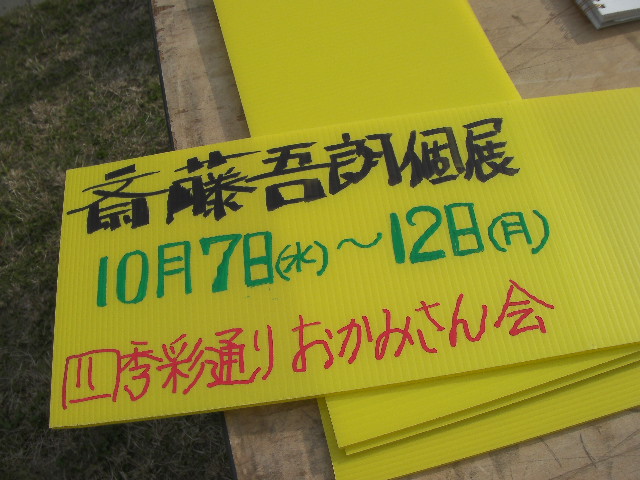 斎藤吾朗個展
10月7日(水)～12日(月)
四季彩通りおかみさん会